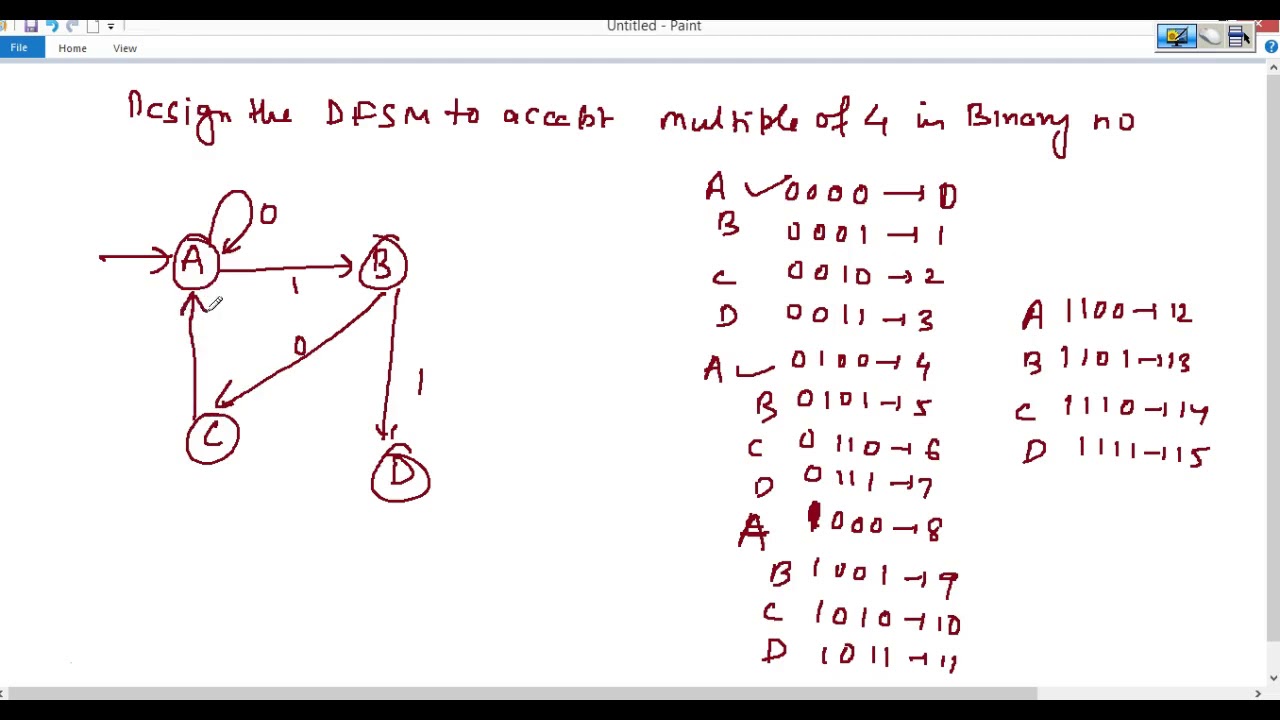 Untitled - Paint
File Home View
Design the DFSM to accept multiple of 4 in Binary no
0
A
1
B
0
1
C
D
A ✓ 0000 → 0
B 0001 → 1
C 0010 → 2
D 0011 → 3
A ✓ 0100 → 4
B 0101 → 5
C 0110 → 6
D 0111 → 7
A 1000 → 8
B 1001 → 9
C 1010 → 10
D 1011 → 11
A 1100 → 12
B 1101 → 13
C 1110 → 14
D 1111 → 15